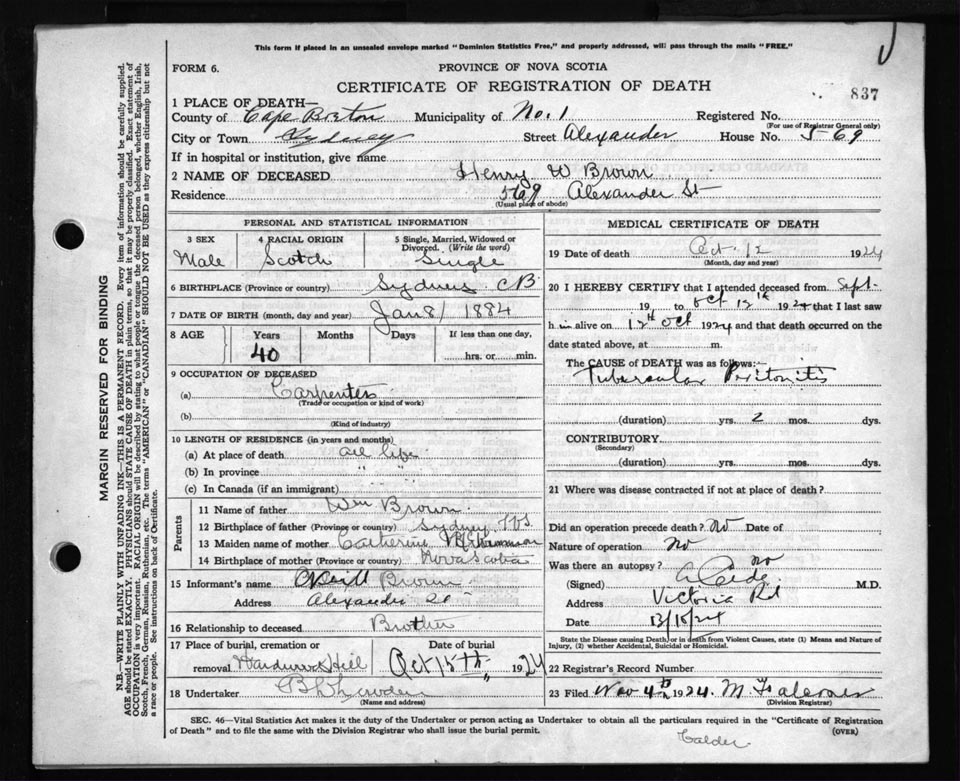 This form if placed in an unsealed envelope marked "Dominion Statistics Free," and properly addressed, will pass through the mails "FREE."
FORM 6.
PROVINCE OF NOVA SCOTIA
CERTIFICATE OF REGISTRATION OF DEATH
837
1 PLACE OF DEATH—
County of Cape Breton Municipality of No. 1 Registered No.
(For use of Registrar General only)
City or Town Sydney Street Alexander House No. 569
If in hospital or institution, give name
2 NAME OF DECEASED Henry W Brown
Residence 569 Alexander St
(Usual place of abode)
PERSONAL AND STATISTICAL INFORMATION
3 SEX Male
4 RACIAL ORIGIN Scotch
5 Single, Married, Widowed or Divorced. (Write the word) Single
6 BIRTHPLACE (Province or country) Sydney CB
7 DATE OF BIRTH (month, day and year) Jan 8/ 1884
8 AGE Years Months Days If less than one day,
40 hrs. or min.
9 OCCUPATION OF DECEASED
(a) Carpenter
(Trade or occupation or kind of work)
(b)
(Kind of industry)
10 LENGTH OF RESIDENCE (in years and months)
(a) At place of death all life
(b) In province " "
(c) In Canada (if an immigrant)
Parents
11 Name of father Wm Brown
12 Birthplace of father (Province or country) Sydney N.S.
13 Maiden name of mother Catherine
14 Birthplace of mother (Province or country) Nova Scotia
15 Informant's name Brown
Address Alexander St
16 Relationship to deceased Brother
17 Place of burial, cremation or removal Hardwood Hill
Date of burial Oct 15th, 1924
18 Undertaker
(Name and address)
MEDICAL CERTIFICATE OF DEATH
19 Date of death Oct. 12 1924
(Month, day and year)
20 I HEREBY CERTIFY that I attended deceased from Sept.
19 to Oct 12th 1924 that I last saw
h im alive on 12th Oct 1924 and that death occurred on the
date stated above, at m.
The CAUSE of DEATH was as follows:—
Tubercular Peritonitis
(duration) yrs. 2 mos. dys.
CONTRIBUTORY
(Secondary)
(duration) yrs. mos. dys.
21 Where was disease contracted if not at place of death?
Did an operation precede death? no Date of
Nature of operation no
Was there an autopsy? no
(Signed) M.D.
Address Victoria Rd
Date 13/10/24
State the Disease causing Death, or in death from Violent Causes, state (1) Means and Nature of Injury, (2) whether Accidental, Suicidal or Homicidal.
22 Registrar's Record Number
23 Filed Nov 4th 1924. M.
(Division Registrar)
SEC. 46—Vital Statistics Act makes it the duty of the Undertaker or person acting as Undertaker to obtain all the particulars required in the "Certificate of Registration
of Death" and to file the same with the Division Registrar who shall issue the burial permit.
(OVER)
Calder
MARGIN RESERVED FOR BINDING
N.B.—WRITE PLAINLY WITH UNFADING INK—THIS IS A PERMANENT RECORD. Every item of information should be carefully supplied.
AGE should be stated EXACTLY. PHYSICIANS should STATE CAUSE OF DEATH in plain terms, so that it may be properly classified. Exact statement of
OCCUPATION is very important. RACIAL ORIGIN will be described by stating to what people or tongue the deceased person belonged, whether English, Irish,
Scotch, French, German, Russian, Ruthenian, etc. The terms "AMERICAN" or "CANADIAN" SHOULD NOT BE USED as they express citizenship but not
a race or people. See instructions on back of Certificate.